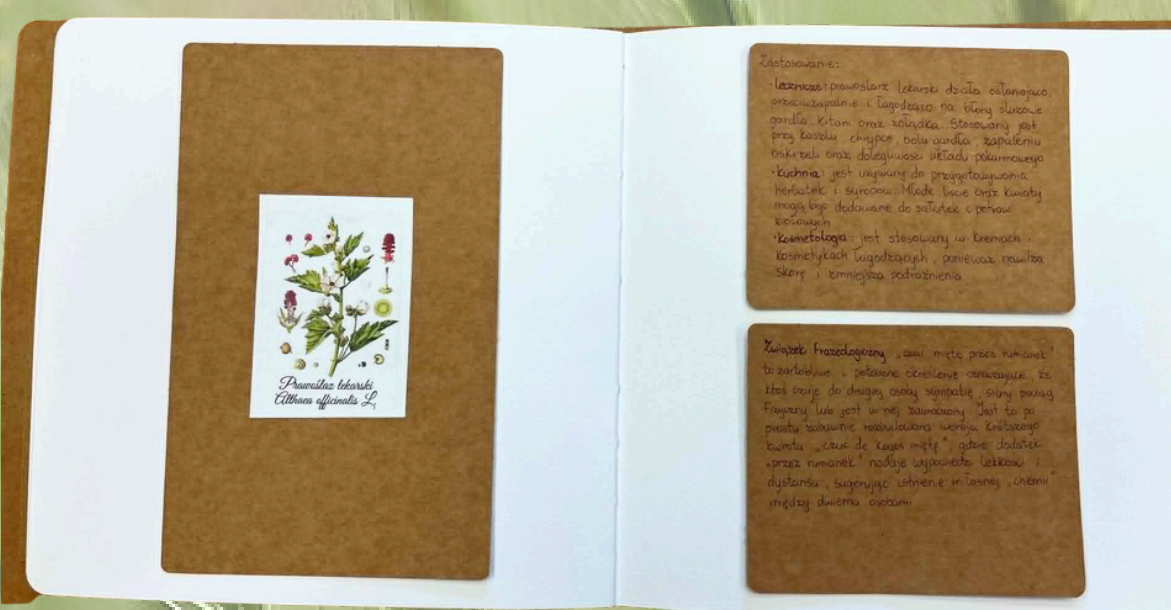 Prawoślaz lekarski
Althaea officinalis L.
Zastosowanie:
• Lecznicze: prawoślarz lekarski działa osłaniająco
przeciwzapalnie i łagodząco na błony śluzowe
gardła, krtani oraz żołądka. Stosowany jest
przy kaszlu, chrypce, bólu gardła, zapaleniu
oskrzeli oraz dolegliwości układu pokarmowego
• Kuchnia: jest używany do przygotowywania
herbatek i syropów. Młode liście oraz kwiaty
mogą być dodawane do sałatek i potraw
ziołowych
• Kosmetologia: jest stosowany w kremach i
kosmetykach łagodzących, ponieważ nawilża
skórę i zmniejsza podrażnienia
Związek Frazeologiczny „czuć miętę przez rumianek"
to żartobliwe i potoczne określenie oznaczające, że
ktoś czuje do drugiej osoby sympatię, silny pociąg
fizyczny lub jest w niej zauroczony. Jest to po
prostu zabawnie rozbudowana wersja krótszego
zwrotu „czuć do kogoś miętę", gdzie dodatek
„przez rumianek" nadaje wypowiedzi lekkości i
dystansu, sugerując istnienie miłosnej „chemii"
między dwiema osobami